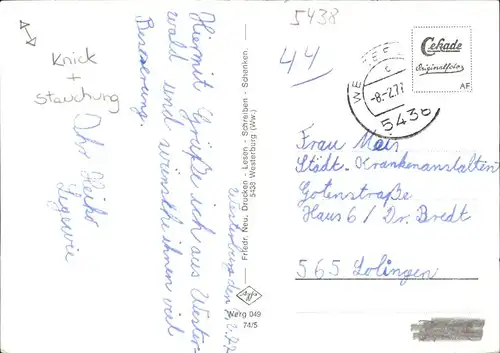 5438
44
Knick
+
Stauchung
Hiermit Grüße ich aus Wester-
wald und wünsche ihnen viel
Besserung.
Ihr Heiko
Westerburg den
Friedr. Neu. Drucken - Lesen - Schreiben - Schenken
5438 Westerburg (Ww.)
Werg 049
74/5
Cekade
Originalfoto
AF
WE
c
5438
Frau Mais
Städt. Krankenanstalten
Gotenstraße
Haus 6 / Dr. Bredt
565 Solingen